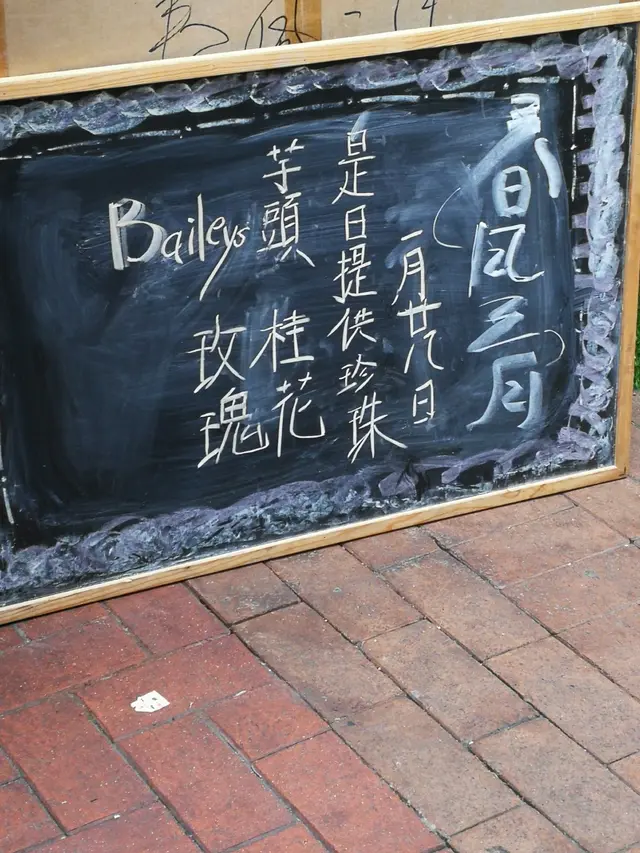 春风三月
一月廿八日
是日提供珍珠
芋頭 桂花
Baileys 玫瑰